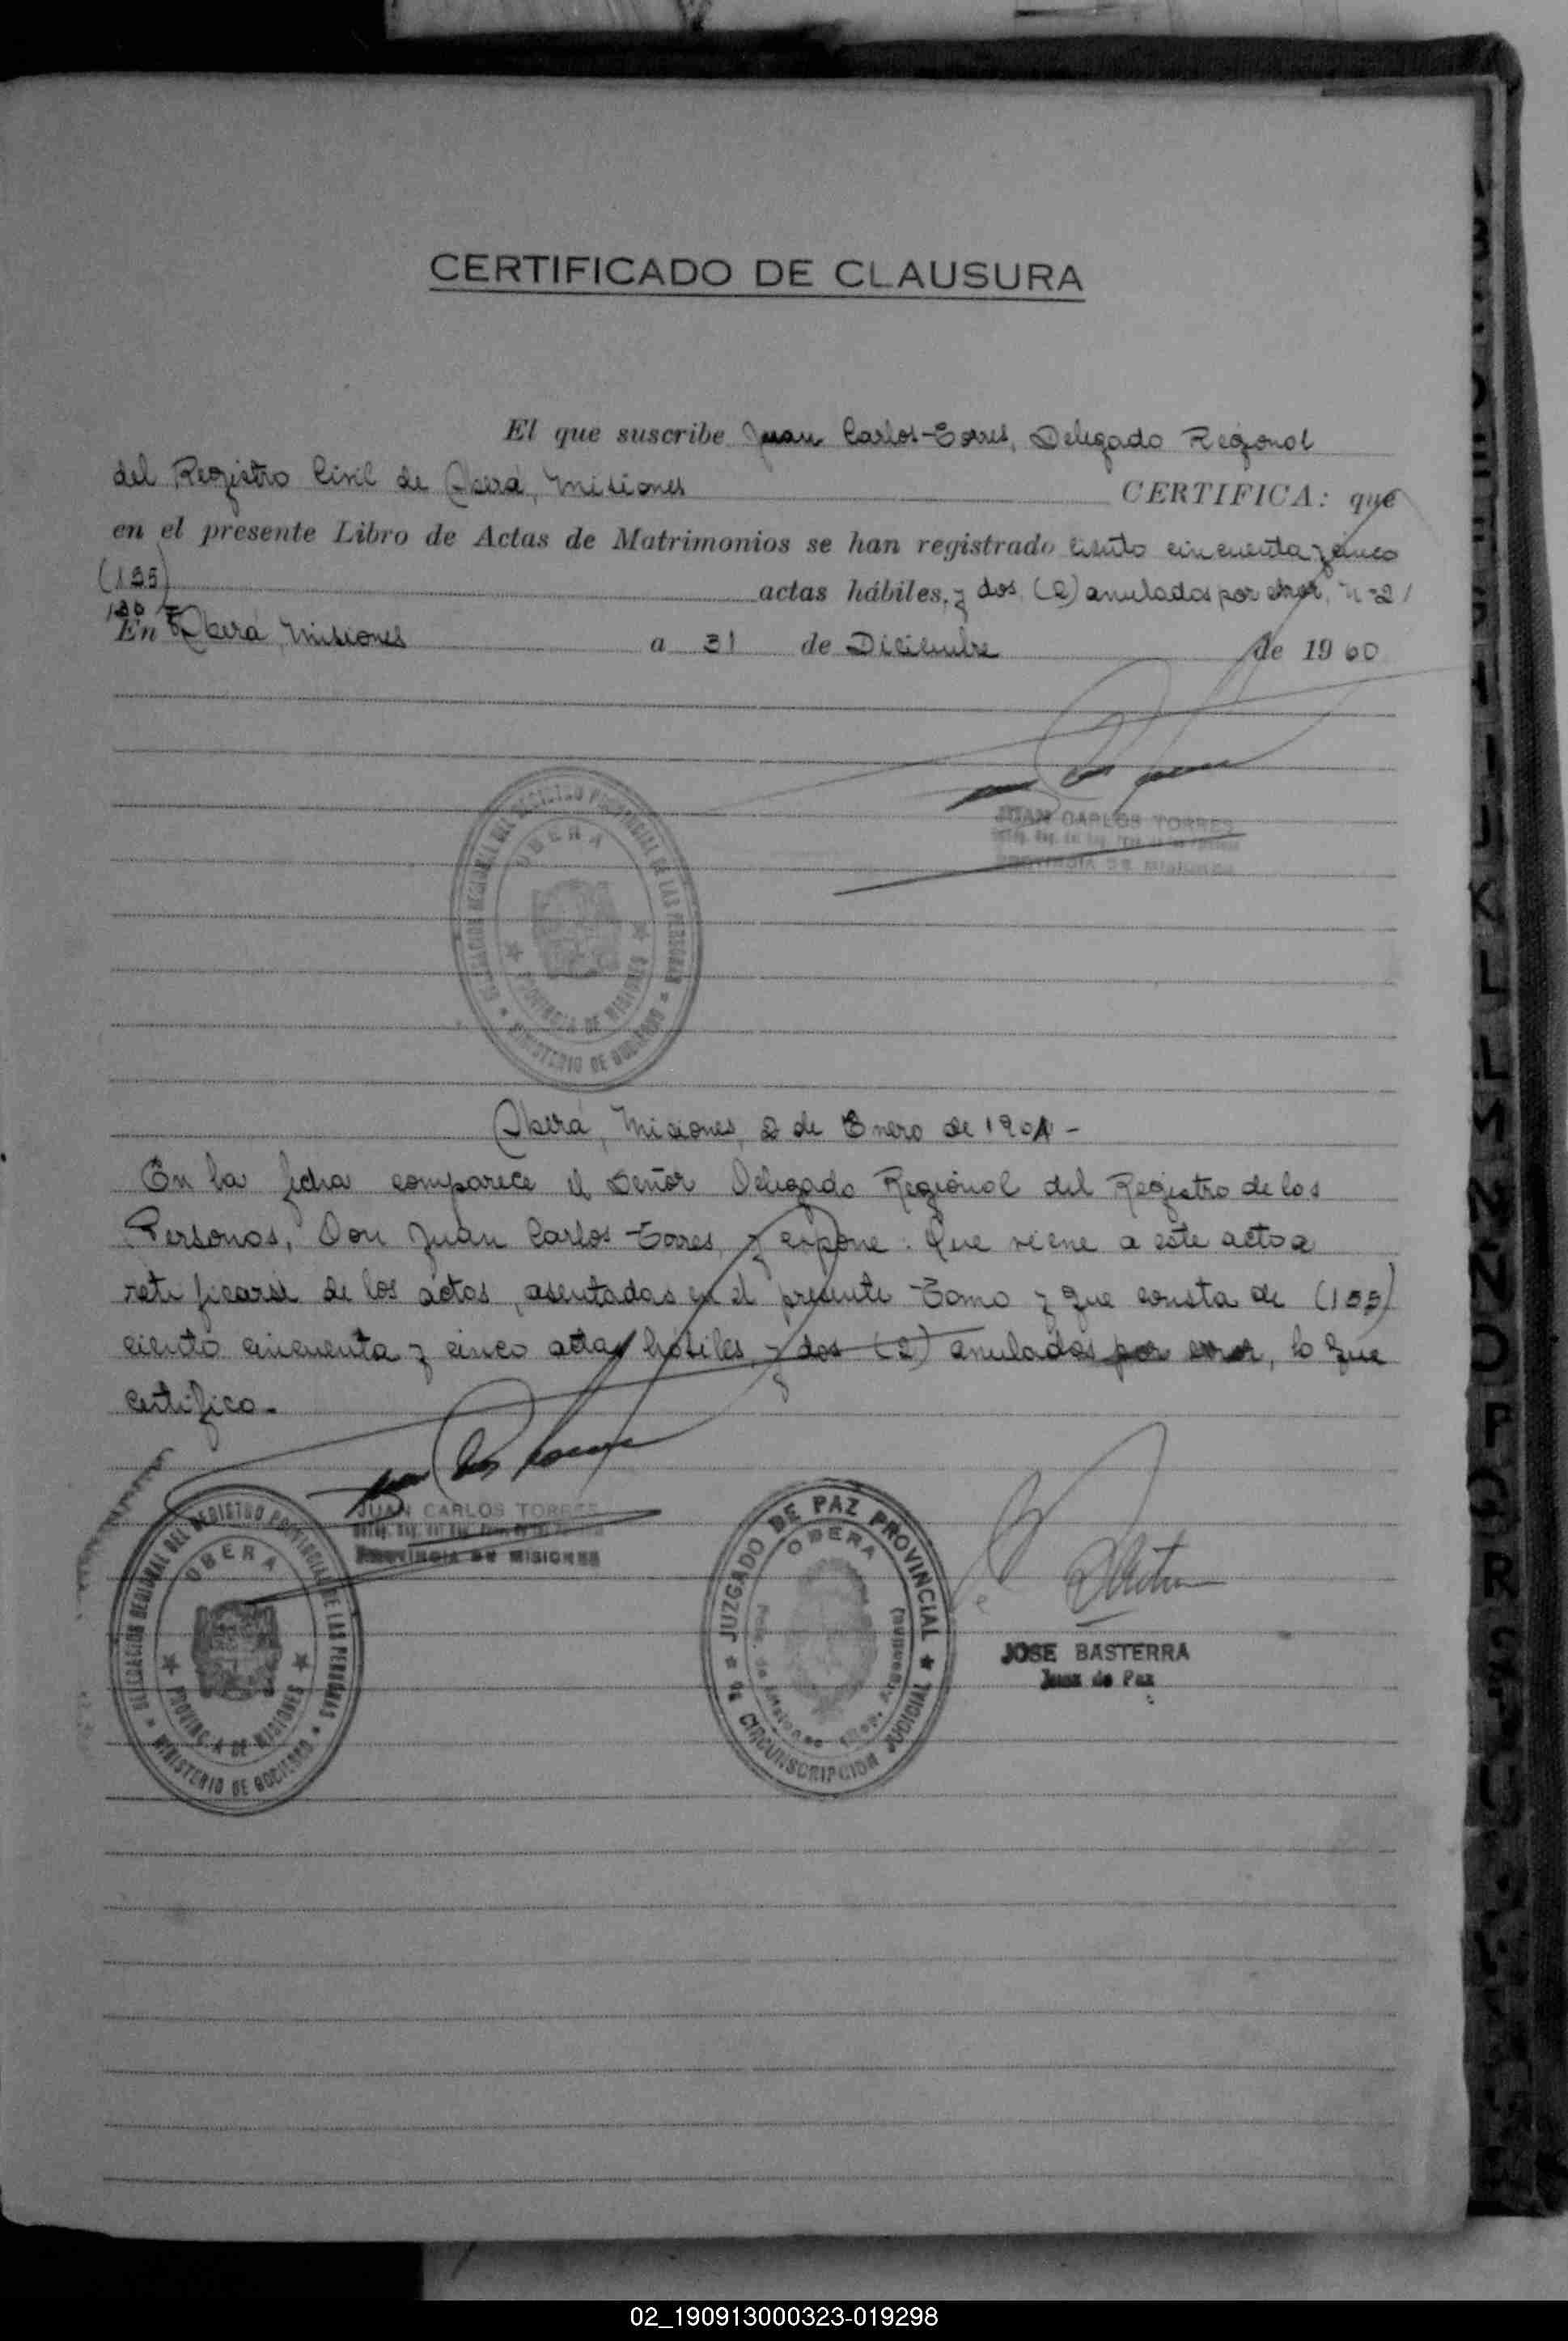 CERTIFICADO DE CLAUSURA
El que suscribe Juan Carlos Torres, Delegado Regional
del Registro Civil de Oberá, Misiones CERTIFICA: que
en el presente Libro de Actas de Matrimonios se han registrado ciento cincuenta y cinco
(155) actas hábiles, y dos (2) anuladas por error, nº 21
En Oberá, Misiones a 31 de Diciembre de 1960
OBERA
PROVINCIA DE MISIONES
MINISTERIO DE GOBIERNO
JUAN CARLOS TORRES
PROVINCIA DE MISIONES
Oberá, Misiones, 2 de Enero de 1961 -
En la fecha comparece el Señor Delegado Regional del Registro de las
Personas, Don Juan Carlos Torres, y expone: Que viene a este acto a
ratificarse de las actas, asentadas en el presente Tomo y que consta de (155)
ciento cincuenta y cinco actas hábiles, y dos (2) anuladas por error, lo que
certifico.-
JUAN CARLOS TORRES
PROVINCIA DE MISIONES
DELEGACION REGIONAL DEL REGISTRO PROVINCIAL DE LAS PERSONAS
OBERA
PROVINCIA DE MISIONES
MINISTERIO DE GOBIERNO
JUZGADO DE PAZ PROVINCIAL
OBERA
CIRCUNSCRIPCION JUDICIAL
JOSE BASTERRA
Juez de Paz
02_190913000323-019298